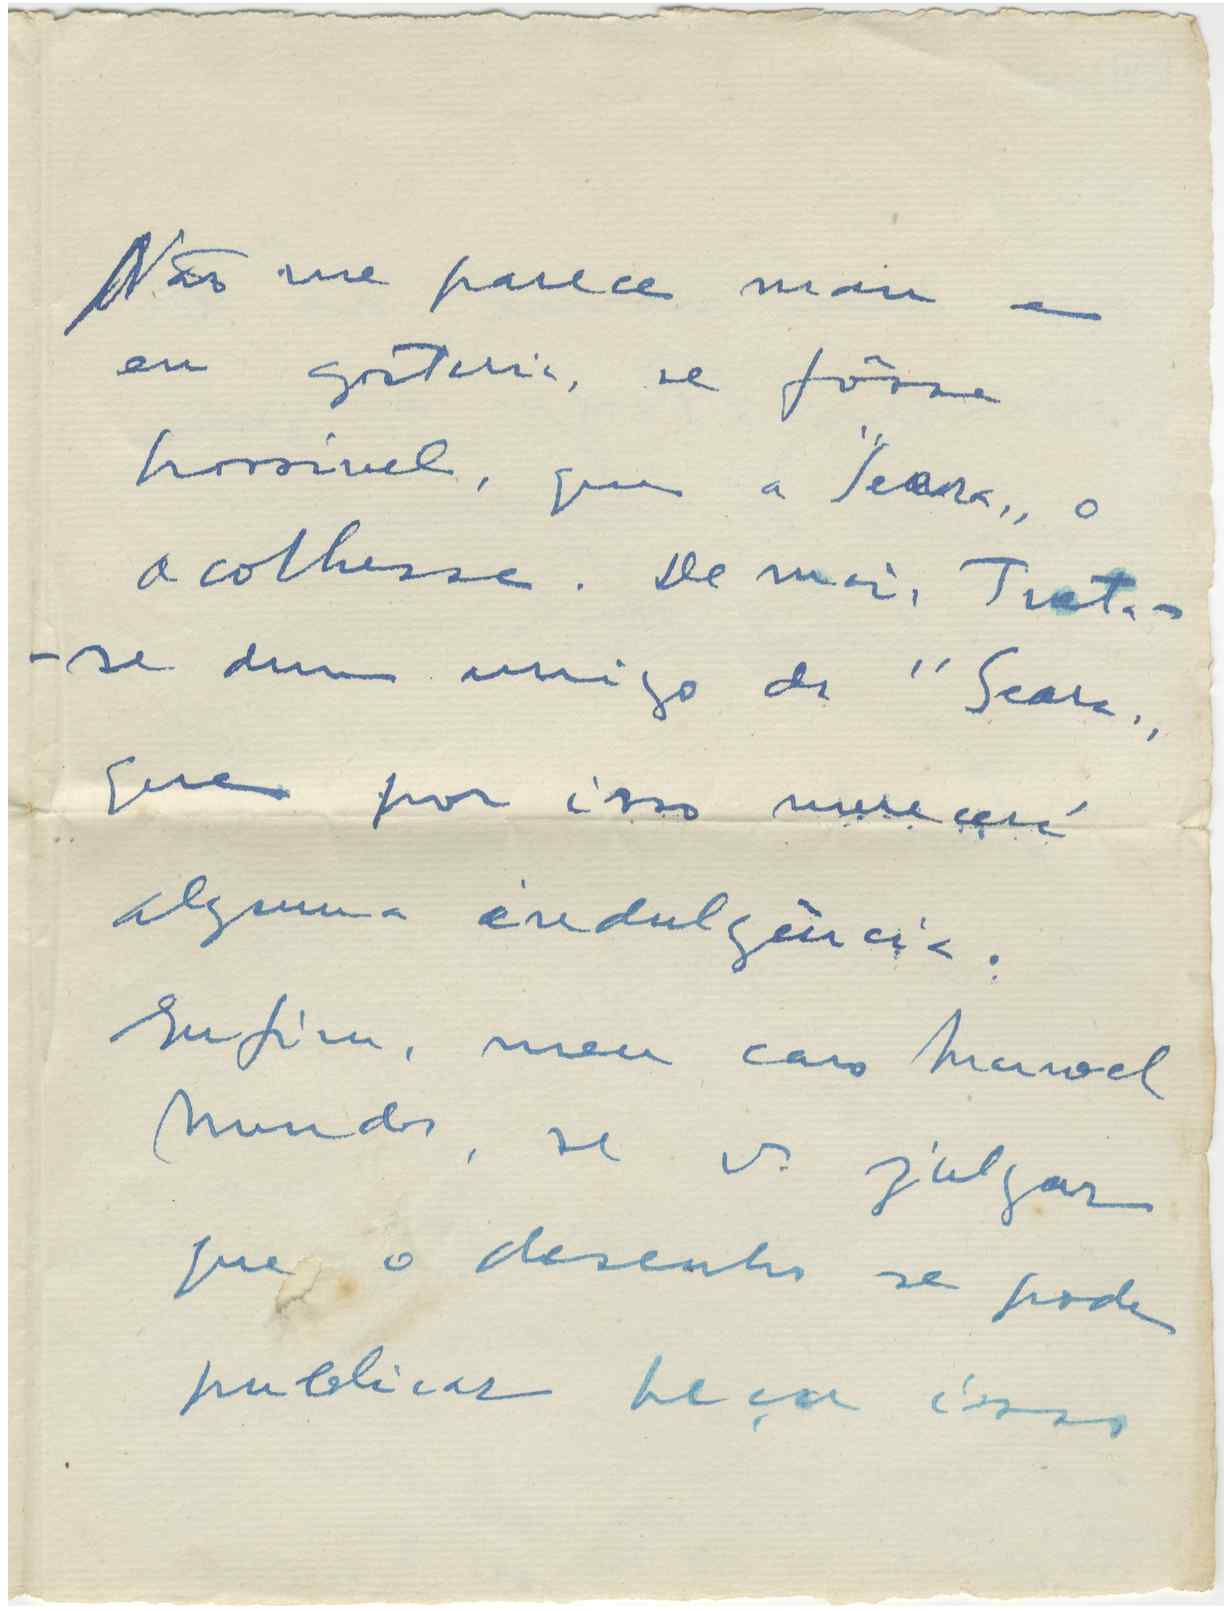 Não me parece mau e
eu gostaria, se fôsse
possivel, que a "Seara" o
acolhesse. De mais, Trata-
-se dum amigo da "Seara"
que por isso merecerá
alguma indulgência.
Enfim, meu caro Manoel
Mendes, se v. julgar
que o desenho se pode
publicar peça isso